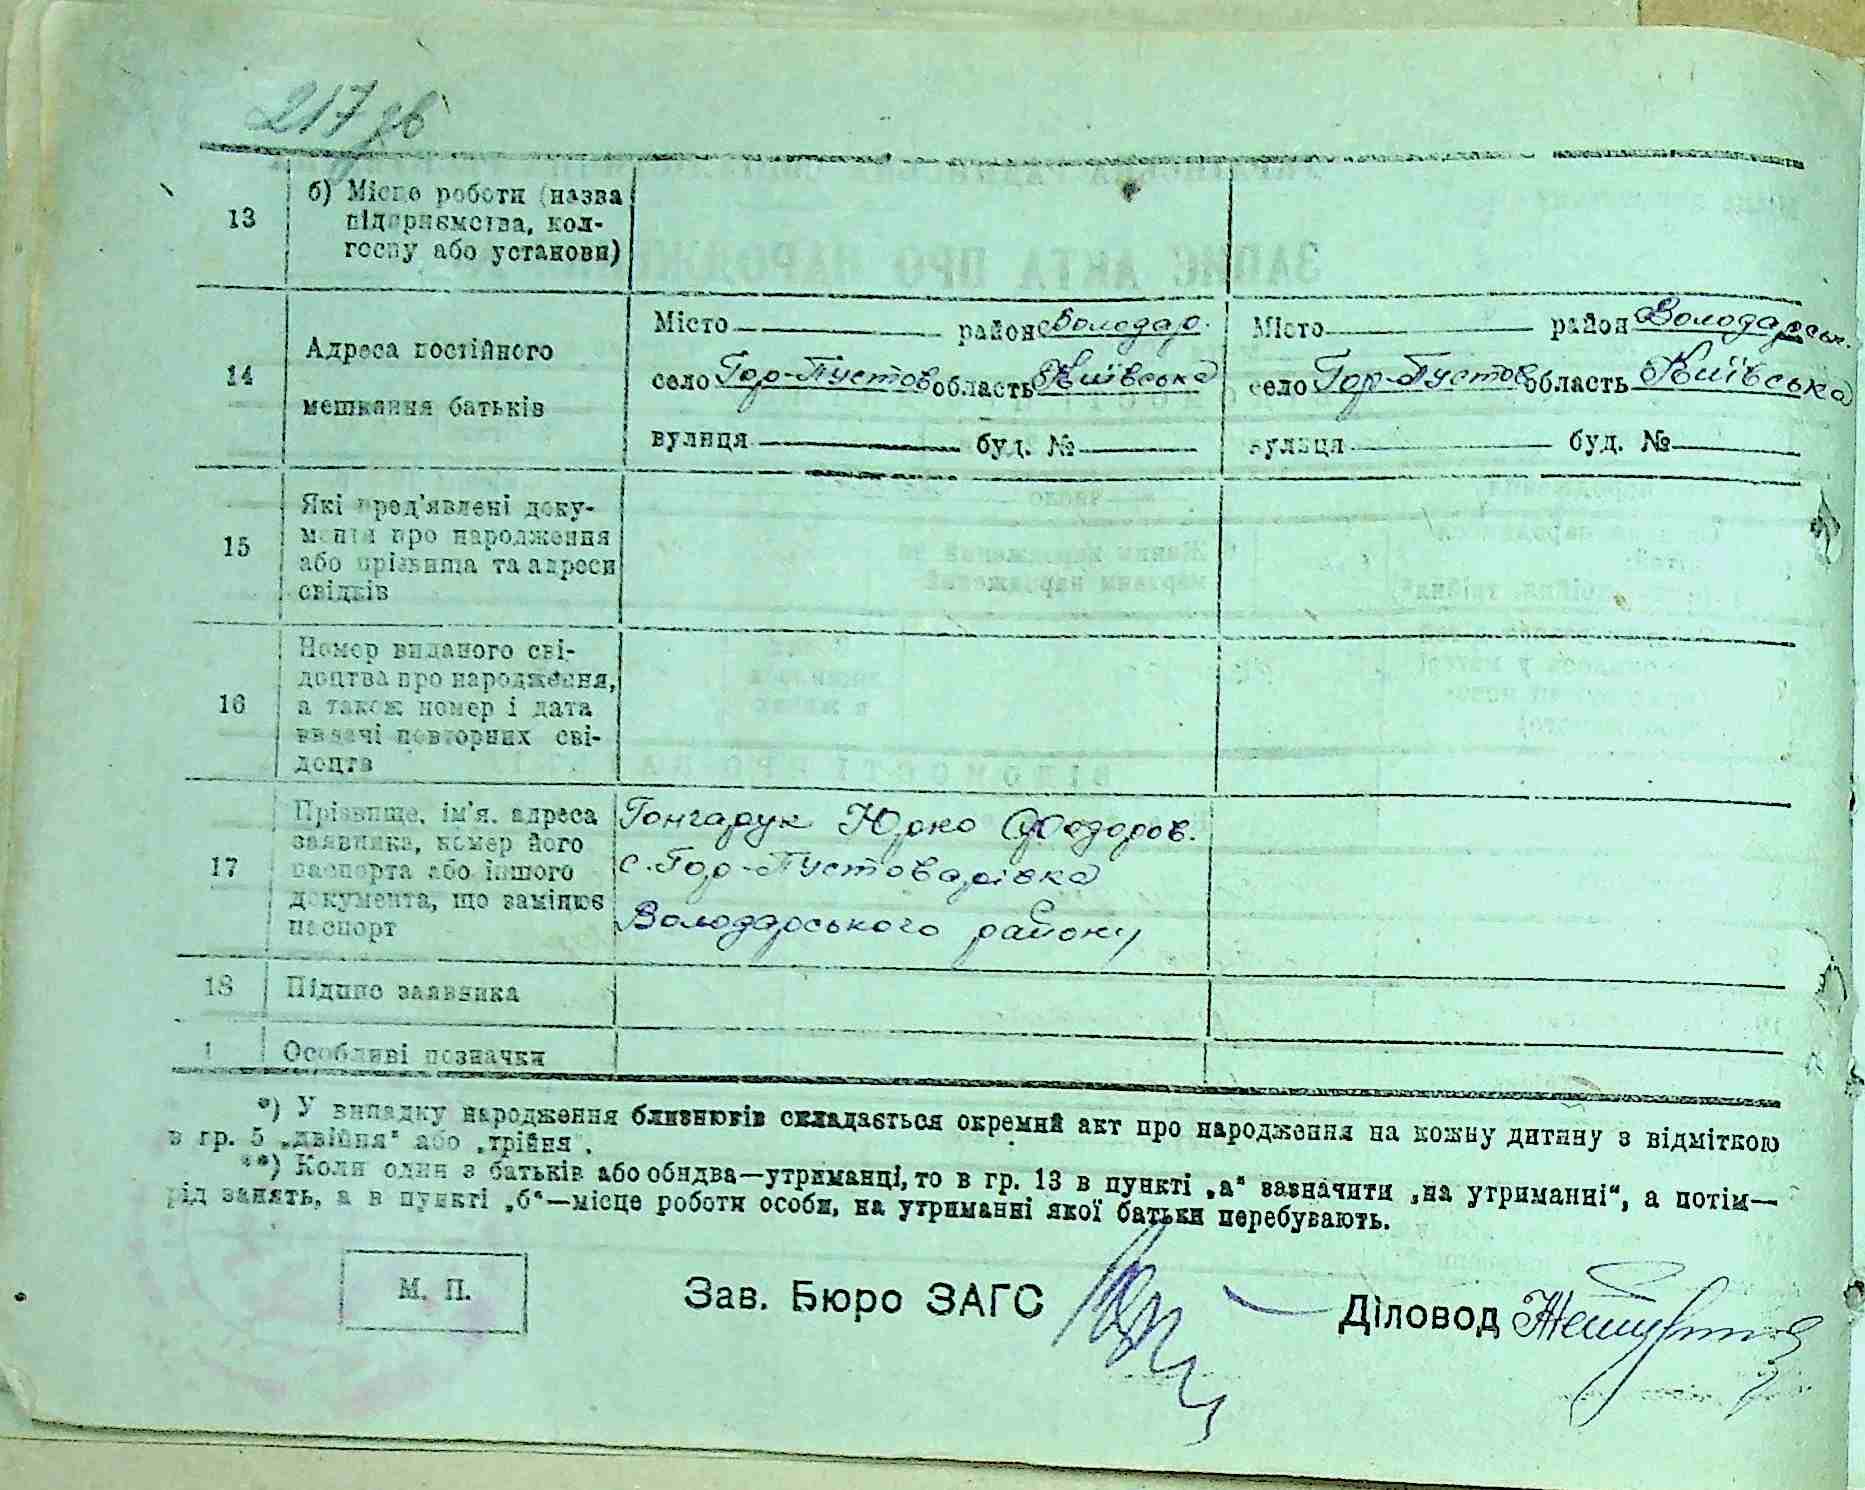 217 зв
13
б) Місце роботи (назва
підприємства, кол-
госпу або установи)
14
Адреса постійного
мешкання батьків
Місто район Володар.
село Гор-Пустов область Київська
вулиця буд. №
Місто район Володарськ.
село Гор-Пустов область Київська
вулиця буд. №
15
Які пред'явлені доку-
менти про народження
або прізвища та адреси
свідків
16
Номер виданого сві-
доцтва про народження,
а також номер і дата
видачі повторних сві-
доцтв
17
Прізвище, ім'я, адреса
заявника, номер його
паспорта або іншого
документа, що замінює
паспорт
Гончарук Юрко Федоров.
с. Гор-Пустоварівка
Володарського району
18
Підпис заявника
1
Особливі позначки
*) У випадку народження близнюків складається окремий акт про народження на кожну дитину з відміткою
в гр. 5 „двійня" або „трійня".
**) Коли один з батьків або обидва—утриманці, то в гр. 13 в пункті „а" зазначити „на утриманні", а потім—
рід занять, а в пункті „б"—місце роботи особи, на утриманні якої батьки перебувають.
М. П.
Зав. Бюро ЗАГС
Діловод